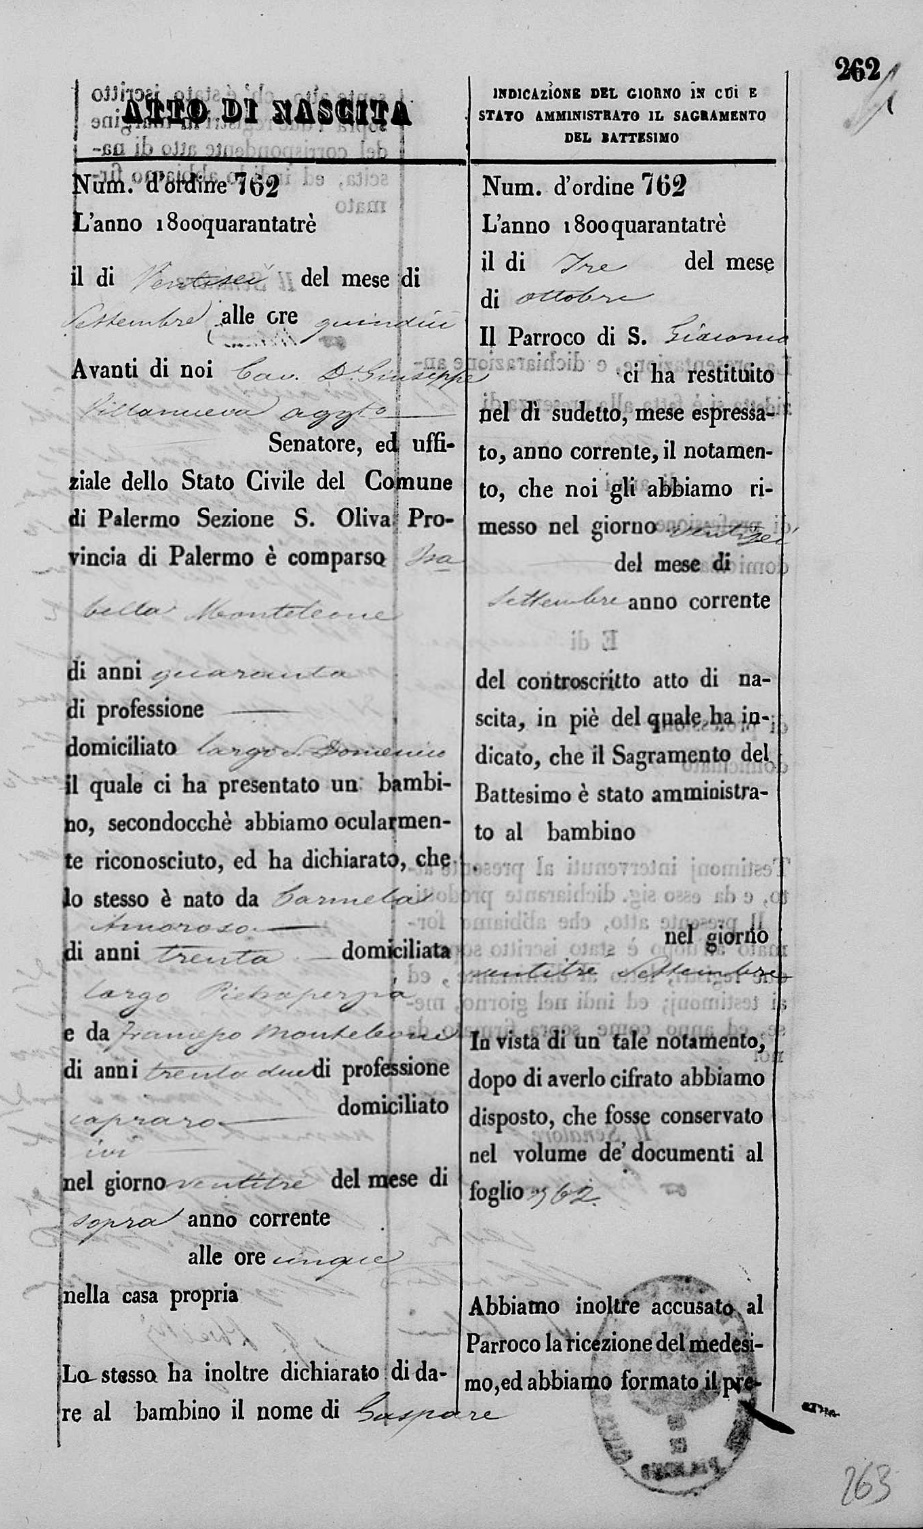 262
ATTO DI NASCITA
Num. d'ordine 762
L'anno 1800quarantatrè
il di Ventisei del mese di
Settembre alle ore quindici
Avanti di noi Cav. D. Giuseppe
Villanueva aggto
Senatore, ed uffi-
ziale dello Stato Civile del Comune
di Palermo Sezione S. Oliva Pro-
vincia di Palermo è comparso Isa
bella Monteleone
di anni quaranta
di professione
domiciliato largo S. Domenico
il quale ci ha presentato un bambi-
no, secondocchè abbiamo ocularmen-
te riconosciuto, ed ha dichiarato, che
lo stesso è nato da Carmela
Amoroso
di anni trenta domiciliata
largo Pietraperzia
e da Francesco Monteleone
di anni trenta due di professione
capraro domiciliato
ivi
nel giorno ventitre del mese di
sopra anno corrente
alle ore cinque
nella casa propria
Lo stesso ha inoltre dichiarato di da-
re al bambino il nome di Gaspare
INDICAZIONE DEL GIORNO IN CUI E
STATO AMMINISTRATO IL SAGRAMENTO
DEL BATTESIMO
Num. d'ordine 762
L'anno 1800quarantatrè
il di Tre del mese
di ottobre
Il Parroco di S. Giacomo
ci ha restituito
nel dì sudetto, mese espressa-
to, anno corrente, il notamen-
to, che noi gli abbiamo ri-
messo nel giorno ventisei
del mese di
Settembre anno corrente
del controscritto atto di na-
scita, in piè del quale ha in-
dicato, che il Sagramento del
Battesimo è stato amministra-
to al bambino
nel giorno
ventitre Settembre
In vista di un tale notamento,
dopo di averlo cifrato abbiamo
disposto, che fosse conservato
nel volume de' documenti al
foglio 762
Abbiamo inoltre accusato al
Parroco la ricezione del medesi-
mo, ed abbiamo formato il pre-
263